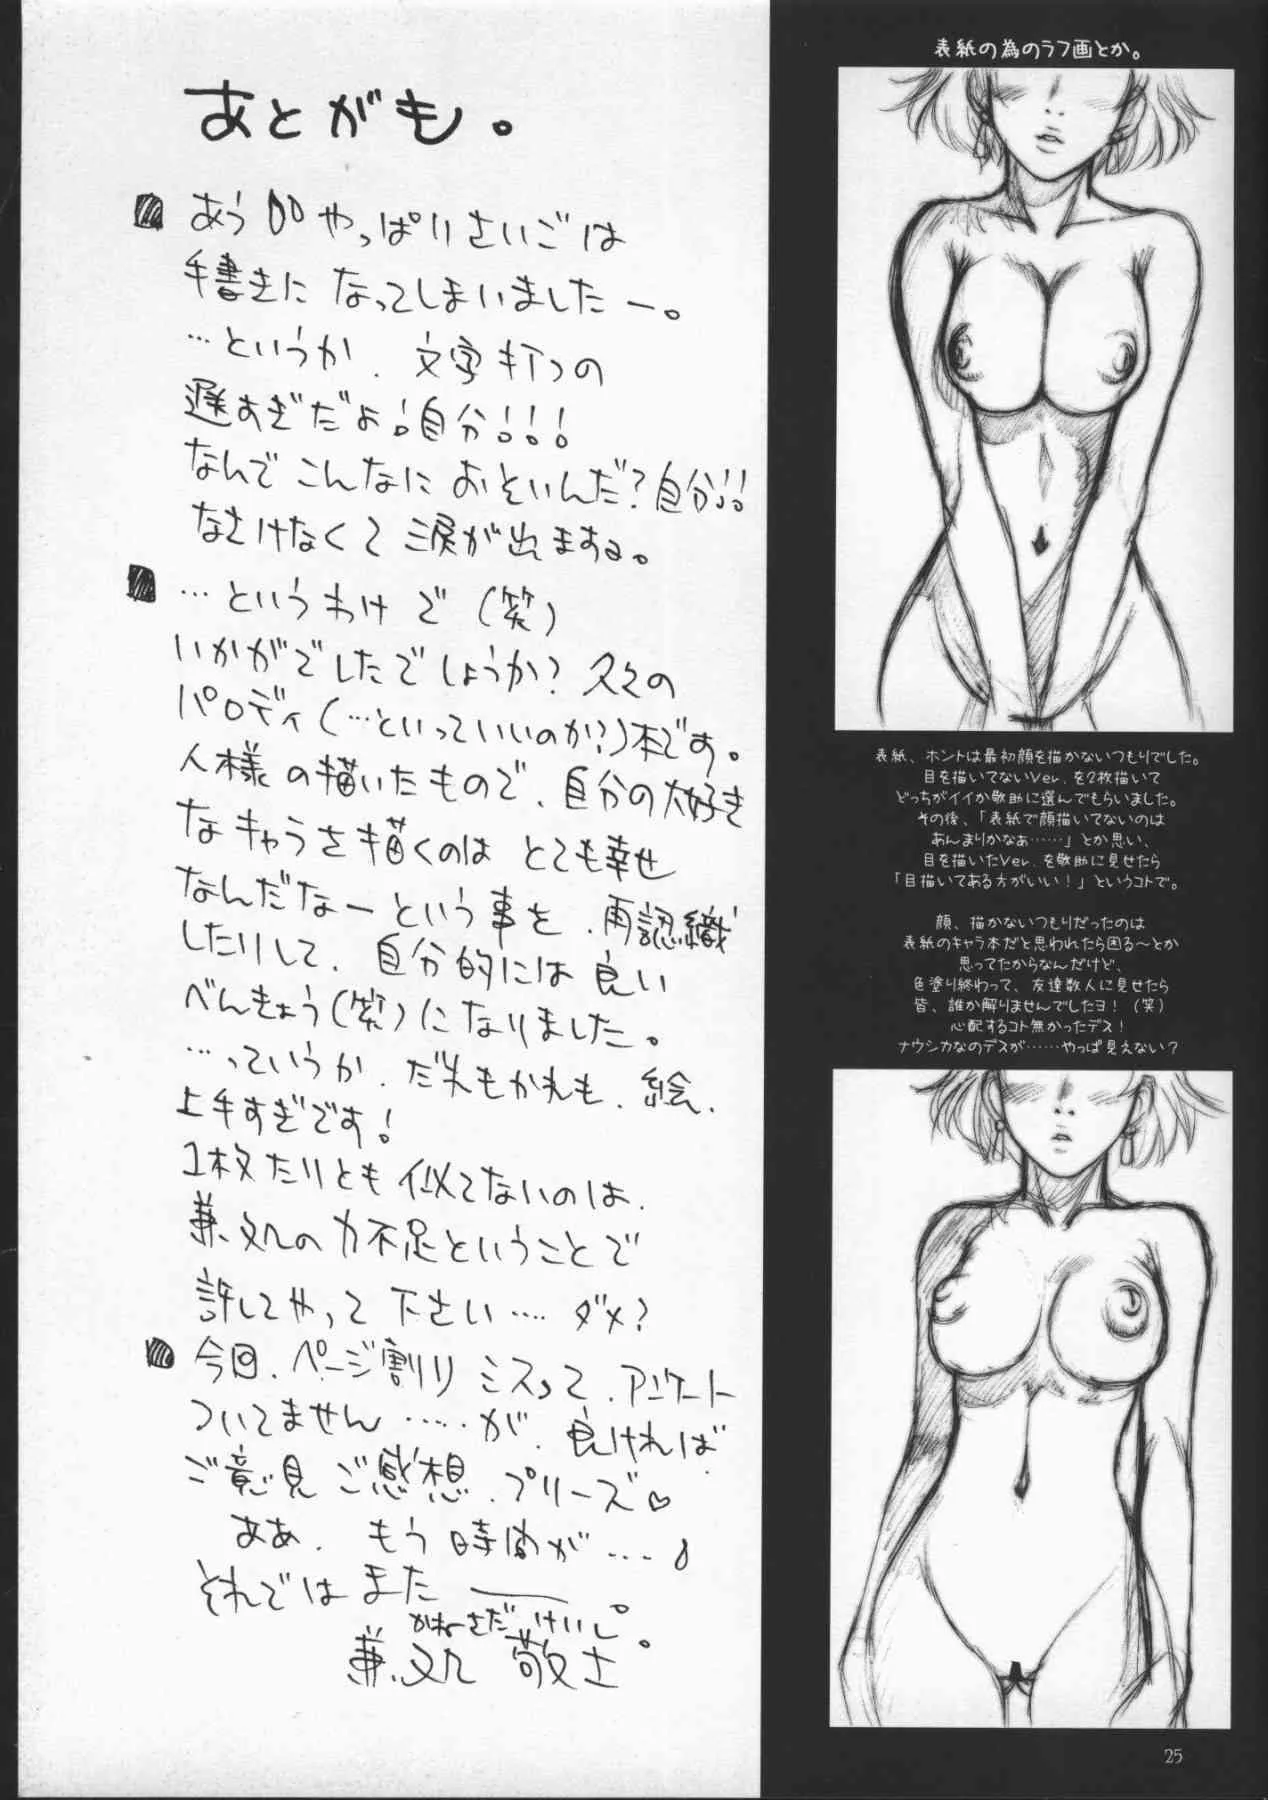 あとがも。
あう やっぱりさいごは
手書きに なってしまいましたー。
…というか、文字打つの
遅すぎだよ!自分!!!
なんで こんなに おそいんだ?自分!!
なさけなくて 涙が出ますよ。
…というわけ で (笑)
いかがでしたでしょうか? 久々の
パロディ(…といっていいのか?)本です。
人様の描いたもので、自分の大好き
なキャラを描くのは とても幸せ
なんだなーという事を、再認織
したりして、自分的には 良い
べんきょう(笑)になりました。
…っていうか、だれもかれも、絵、
上手すぎです!
1枚たりとも 似てないのは、
兼処の力不足ということで
許してやって 下さい…. ダメ?
今回、ページ割り ミスって、アンケート
ついてません……が、良ければ
ご意見 ご感想、プリーズ♡
ああ、もう時間が….
それでは また――。
かねさだ けいし。
兼処 敬士
表紙の為のラフ画とか。
表紙、ホントは最初顔を描かないつもりでした。
目を描いてないVer.を2枚描いて
どっちがイイか敬助に選んでもらいました。
その後、「表紙で顔描いてないのは
あんまりかなぁ……」とか思い、
目を描いたVer.を敬助に見せたら
「目描いてある方がいい!」というコトで。
顔、描かないつもりだったのは
表紙のキャラ本だと思われたら困る〜とか
思ってたからなんだけど、
色塗り終わって、友達数人に見せたら
皆、誰か解りませんでしたヨ!(笑)
心配するコト無かったデス!
ナウシカなのデスが……やっぱ見えない?
25